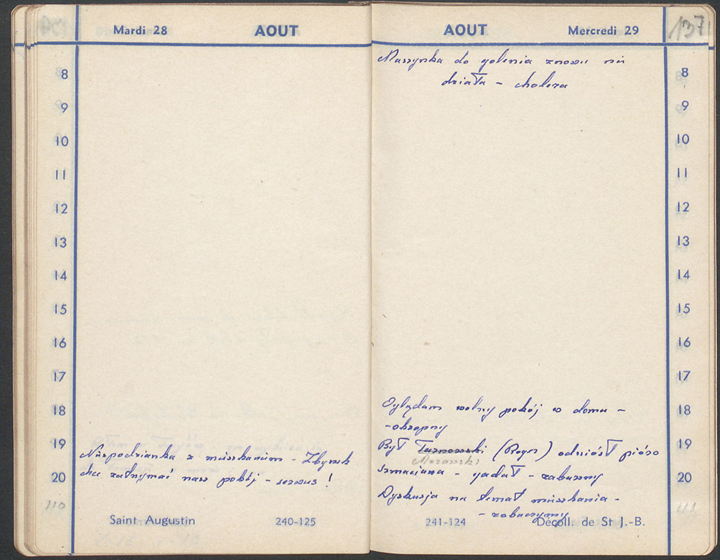 Mardi 28 AOUT
8
9
10
11
12
13
14
15
16
17
18
19
20
Niespodzianka z mieszkaniem - Zbyszek
chce zatrzymać nasz pokój - serwus !
Saint Augustin 240-125
AOUT Mercredi 29
137
Maszynka do golenia znowu nie
działa - cholera
8
9
10
11
12
13
14
15
16
17
18
19
20
Oglądam wolny pokój w domu -
- okropny
Był Tarnowski (Roger) odniósł pióro
Morawski
- gadał - zabawny
Dyskusja na temat mieszkania -
- zobaczymy
241-124 Décoll. de St J.-B.